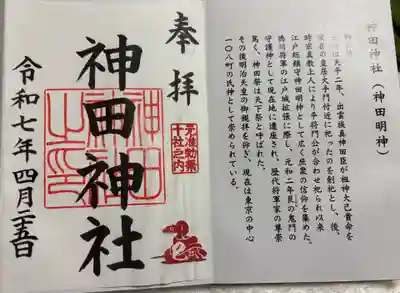 奉拝
元准勅祭
十社之内
神田神社
令和七年四月二十五日
神田神社（神田明神）
天平二年、出雲族真神田臣が祖神大己貴命を
皇居大手門付近に祀ったのを創祀とし、後、
時宗真教上人により平将門公が合わせ祀られ以来
江戸総鎮守神田明神として広く庶衆の信仰を集めた。
徳川将軍の江戸城拡張に際し、元和二年艮の鬼門の
守護神として現在地に遷座され、歴代将軍家の尊崇
篤く、神田祭は天下祭と呼ばれた。
その後明治天皇の御親拝を仰ぎ、現在は東京の中心
一〇八町の氏神として崇められている。